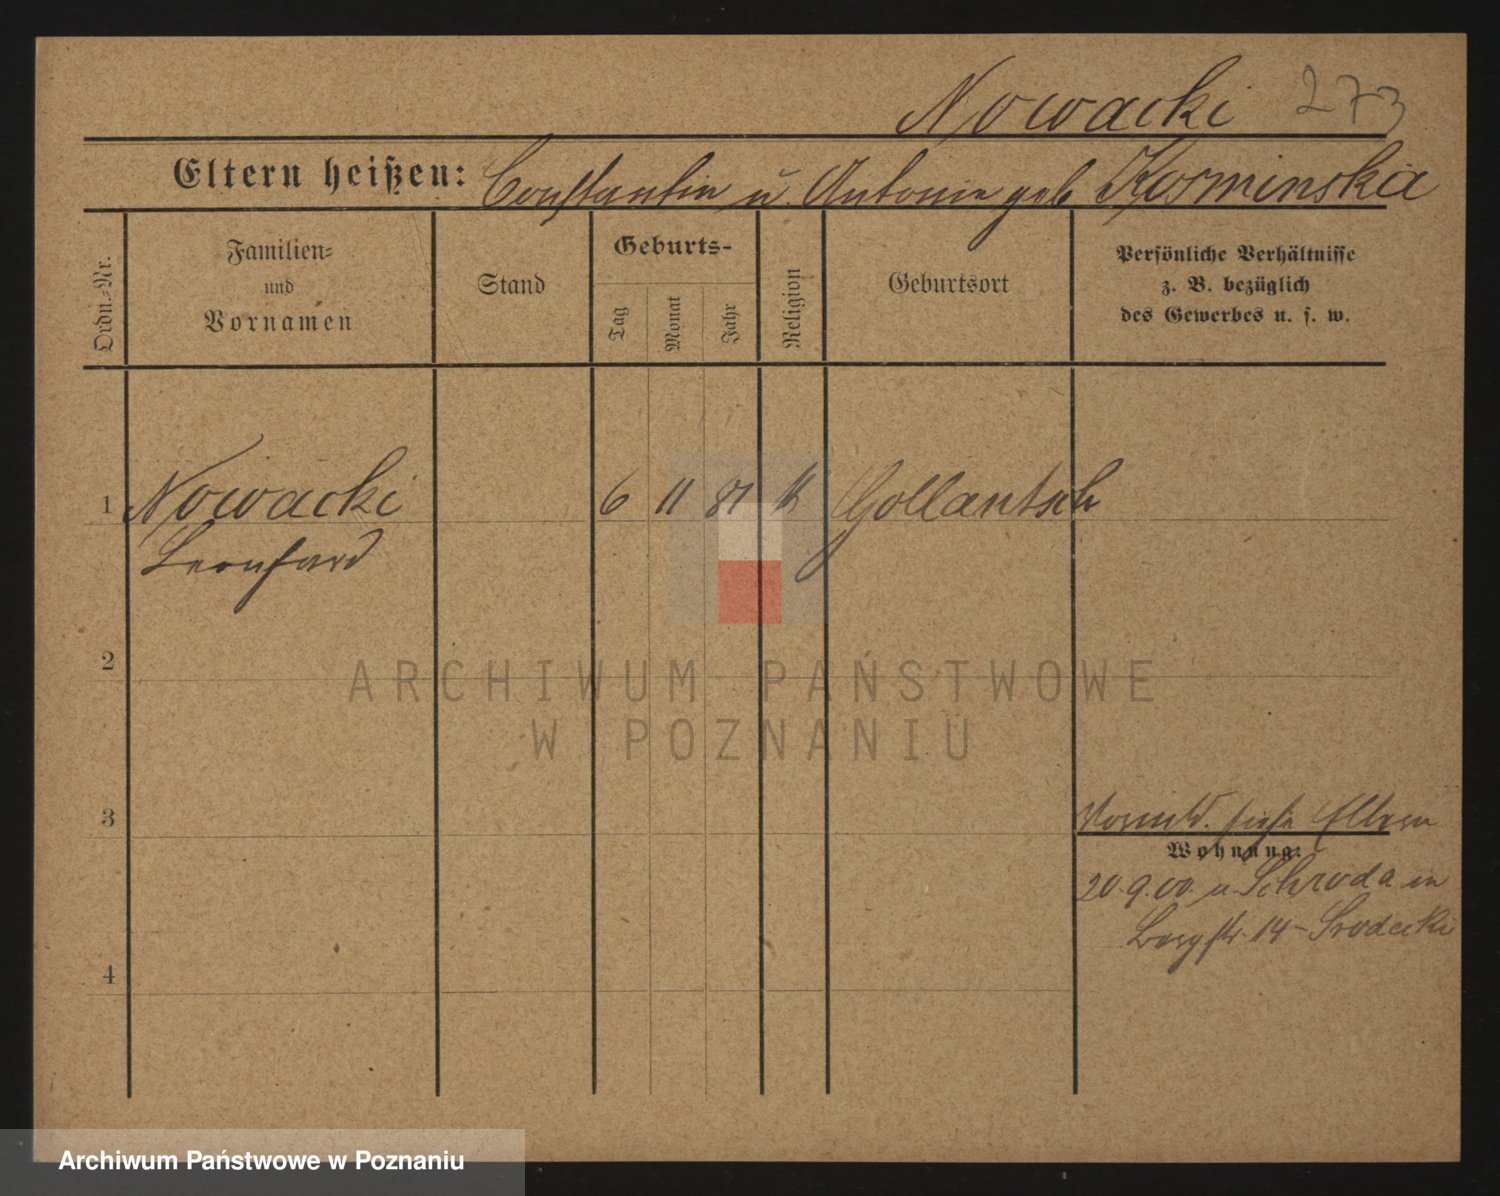 Nowacki 273
Eltern heißen: Constantin u. Antonie geb Kosminska
Ordn.-Nr.
Familien-
und
Vornamen
Stand
Geburts-
Tag
Monat
Jahr
Religion
Geburtsort
Persönliche Verhältnisse
z. B. bezüglich
des Gewerbes u. s. w.
1 Nowacki 6 11 81 k Gollantsch
Leonhard
2
ARCHIWUM PAŃSTWOWE
W POZNANIU
3
Vormd. siehe Eltern
Wohnung:
20.9.00. u. Schroda in
Bergstr. 14 - Srodecki
4
Archiwum Państwowe w Poznaniu